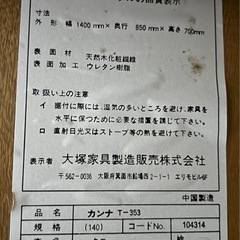 の品質表示
寸法
外形 幅1400mm×奥行 850mm×高さ700mm
表面材 天然木化粧繊維
表面加工 ウレタン樹脂
取扱い上の注意
イ 据付に際には、湿気の多いところを避け、家具を
水平に保つために必要な措置を講じて下さい。
ロ 直射日光又はストーブ等の熱を避けて下さい。
表示者 大塚家具製造販売株式会社
〒562-0036 大阪府箕面市船場西2-1-1 エリモビル6F
中国製造
品名 カンナ T-353
規格 (140) コードNo. 104314